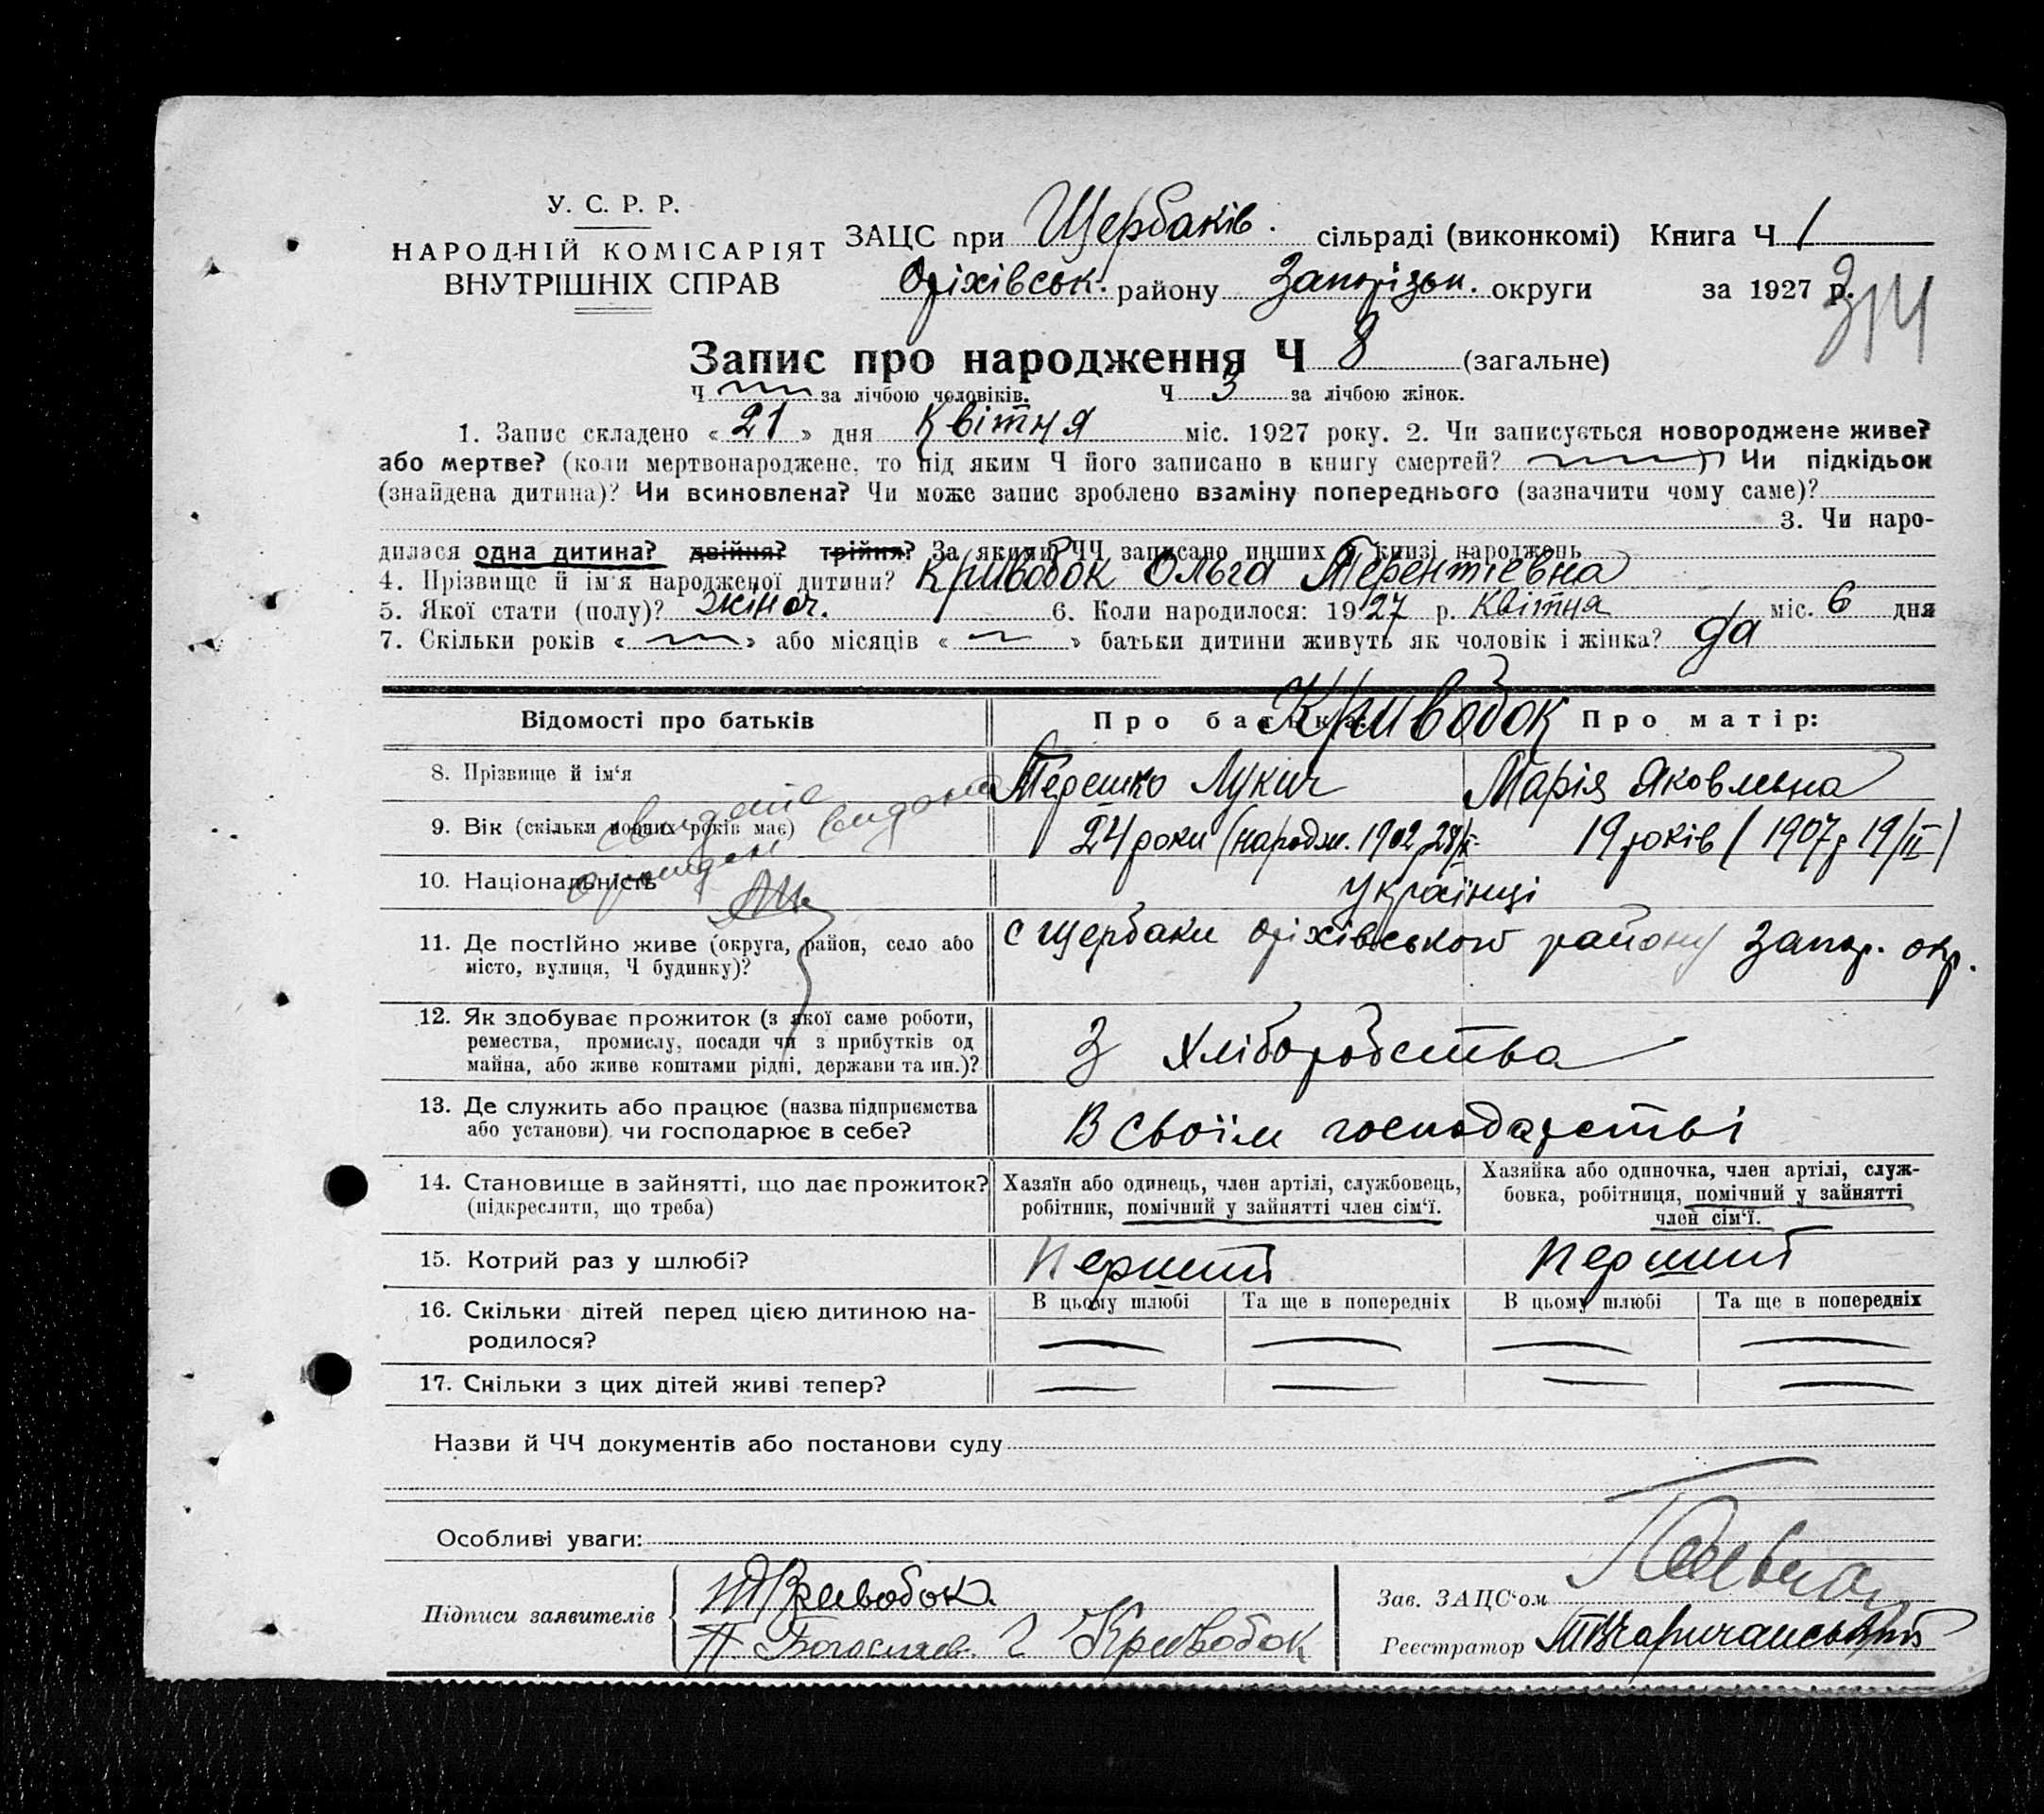 У. С. Р. Р.
НАРОДНІЙ КОМІСАРІЯТ
ВНУТРІШНІХ СПРАВ
ЗАЦС при Щербаків. сільраді (виконкомі) Книга Ч 1
Оріхівськ. району Запорізьк. округи за 1927 р.
314
Запис про народження Ч 8 (загальне)
Ч за лічбою чоловіків. Ч 3 за лічбою жінок.
1. Запис складено « 21 » дня Квітня міс. 1927 року. 2. Чи записується новороджене живе?
або мертве? (коли мертвонароджене, то під яким Ч його записано в книгу смертей? ) Чи підкідьок
(знайдена дитина)? Чи всиновлена? Чи може запис зроблено взаміну попереднього (зазначити чому саме)?
3. Чи наро-
дилася одна дитина? двійня? трійня? За якими ЧЧ записано инших в книзі народжень
4. Прізвище й ім'я народженої дитини? Кривобок Ольга Терентіевна
5. Якої стати (полу)? жіноч. 6. Коли народилося: 1927 р. Квітня міс. 6 дня
7. Скільки років « » або місяців « » батьки дитини живуть як чоловік і жінка? да
Відомості про батьків Про батька: Кривобок Про матір:
8. Прізвище й ім'я Терешко Лукич Марія Яковлевна
9. Вік (скільки повних років має) 24 роки (народж. 1902 19 років (1907 р 19/II)
видано
10. Національність Українці
11. Де постійно живе (округа, район, село або
місто, вулиця, Ч будинку)?
с Щербаки Оріхівського району Запор. окр.
12. Як здобуває прожиток (з якої саме роботи,
ремества, промислу, посади чи з прибутків од
майна, або живе коштами рідні, держави та ин.)?
З Хліборобства
13. Де служить або працює (назва підприємства
або установи) чи господарює в себе?
В своїм господарстві
14. Становище в зайнятті, що дає прожиток?
(підкреслити, що треба)
Хазяїн або одинець, член артілі, службовець,
робітник, помічний у зайнятті член сім'ї.
Хазяйка або одиночка, член артілі, служ-
бовка, робітниця, помічний у зайнятті
член сім'ї.
15. Котрий раз у шлюбі? Перший Перший
16. Скільки дітей перед цією дитиною на-
родилося?
В цьому шлюбі Та ще в попередніх В цьому шлюбі Та ще в попередніх
17. Скільки з цих дітей живі тепер?
Назви й ЧЧ документів або постанови суду
Особливі уваги:
Підписи заявителів
Кривобок
Кривобок
Зав. ЗАЦС'ом
Реєстратор